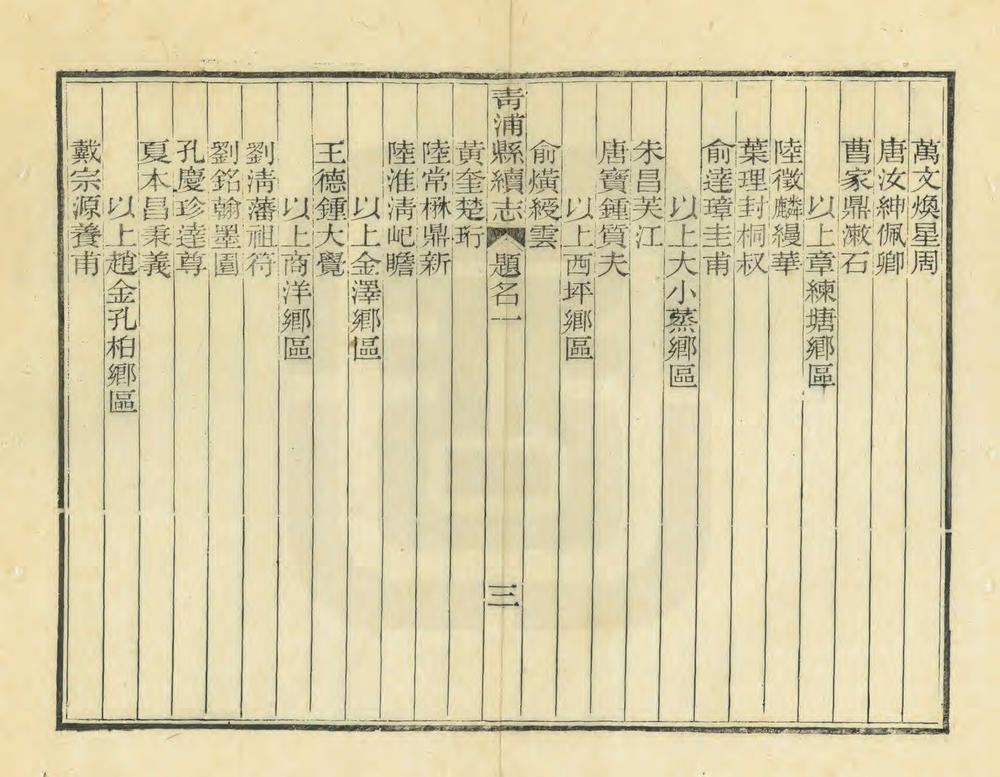 萬文煥星周
唐汝紳佩卿
曹家鼎漱石
以上章練塘鄉區
陸徵麟縵華
葉理封桐叔
俞達璋圭甫
以上大小蒸鄉區
朱昌芙江
唐寶鍾質夫
以上西坪鄉區
俞熿綬雲
青浦縣續志 題名一 三
黃奎楚珩
陸常楙鼎新
陸淮淸屺瞻
以上金澤鄉區
王德鍾大覺
以上商洋鄉區
劉淸藩祖符
劉銘翰墨園
孔慶珍達尊
夏本昌秉義
以上趙金孔柏鄉區
戴宗源養甫